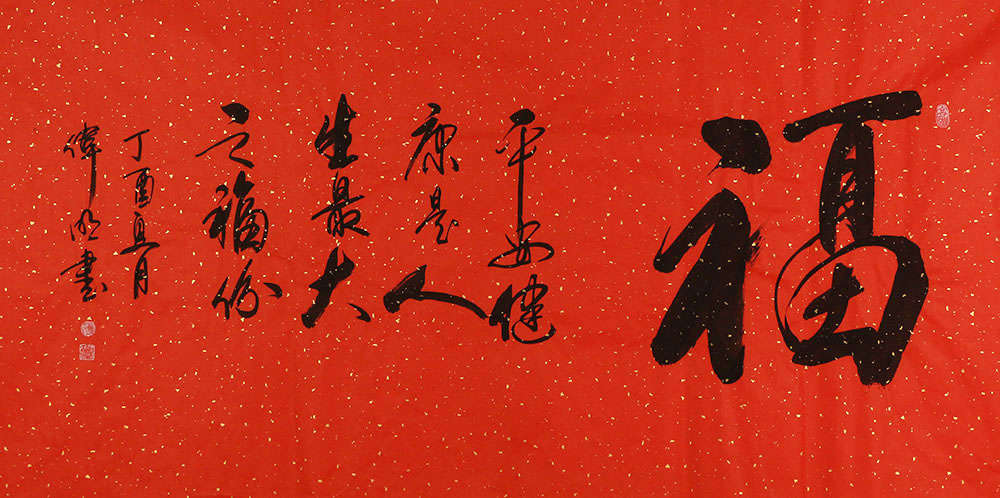 福
平安健
康是人
生最大
之福份
丁酉五月
偉明書